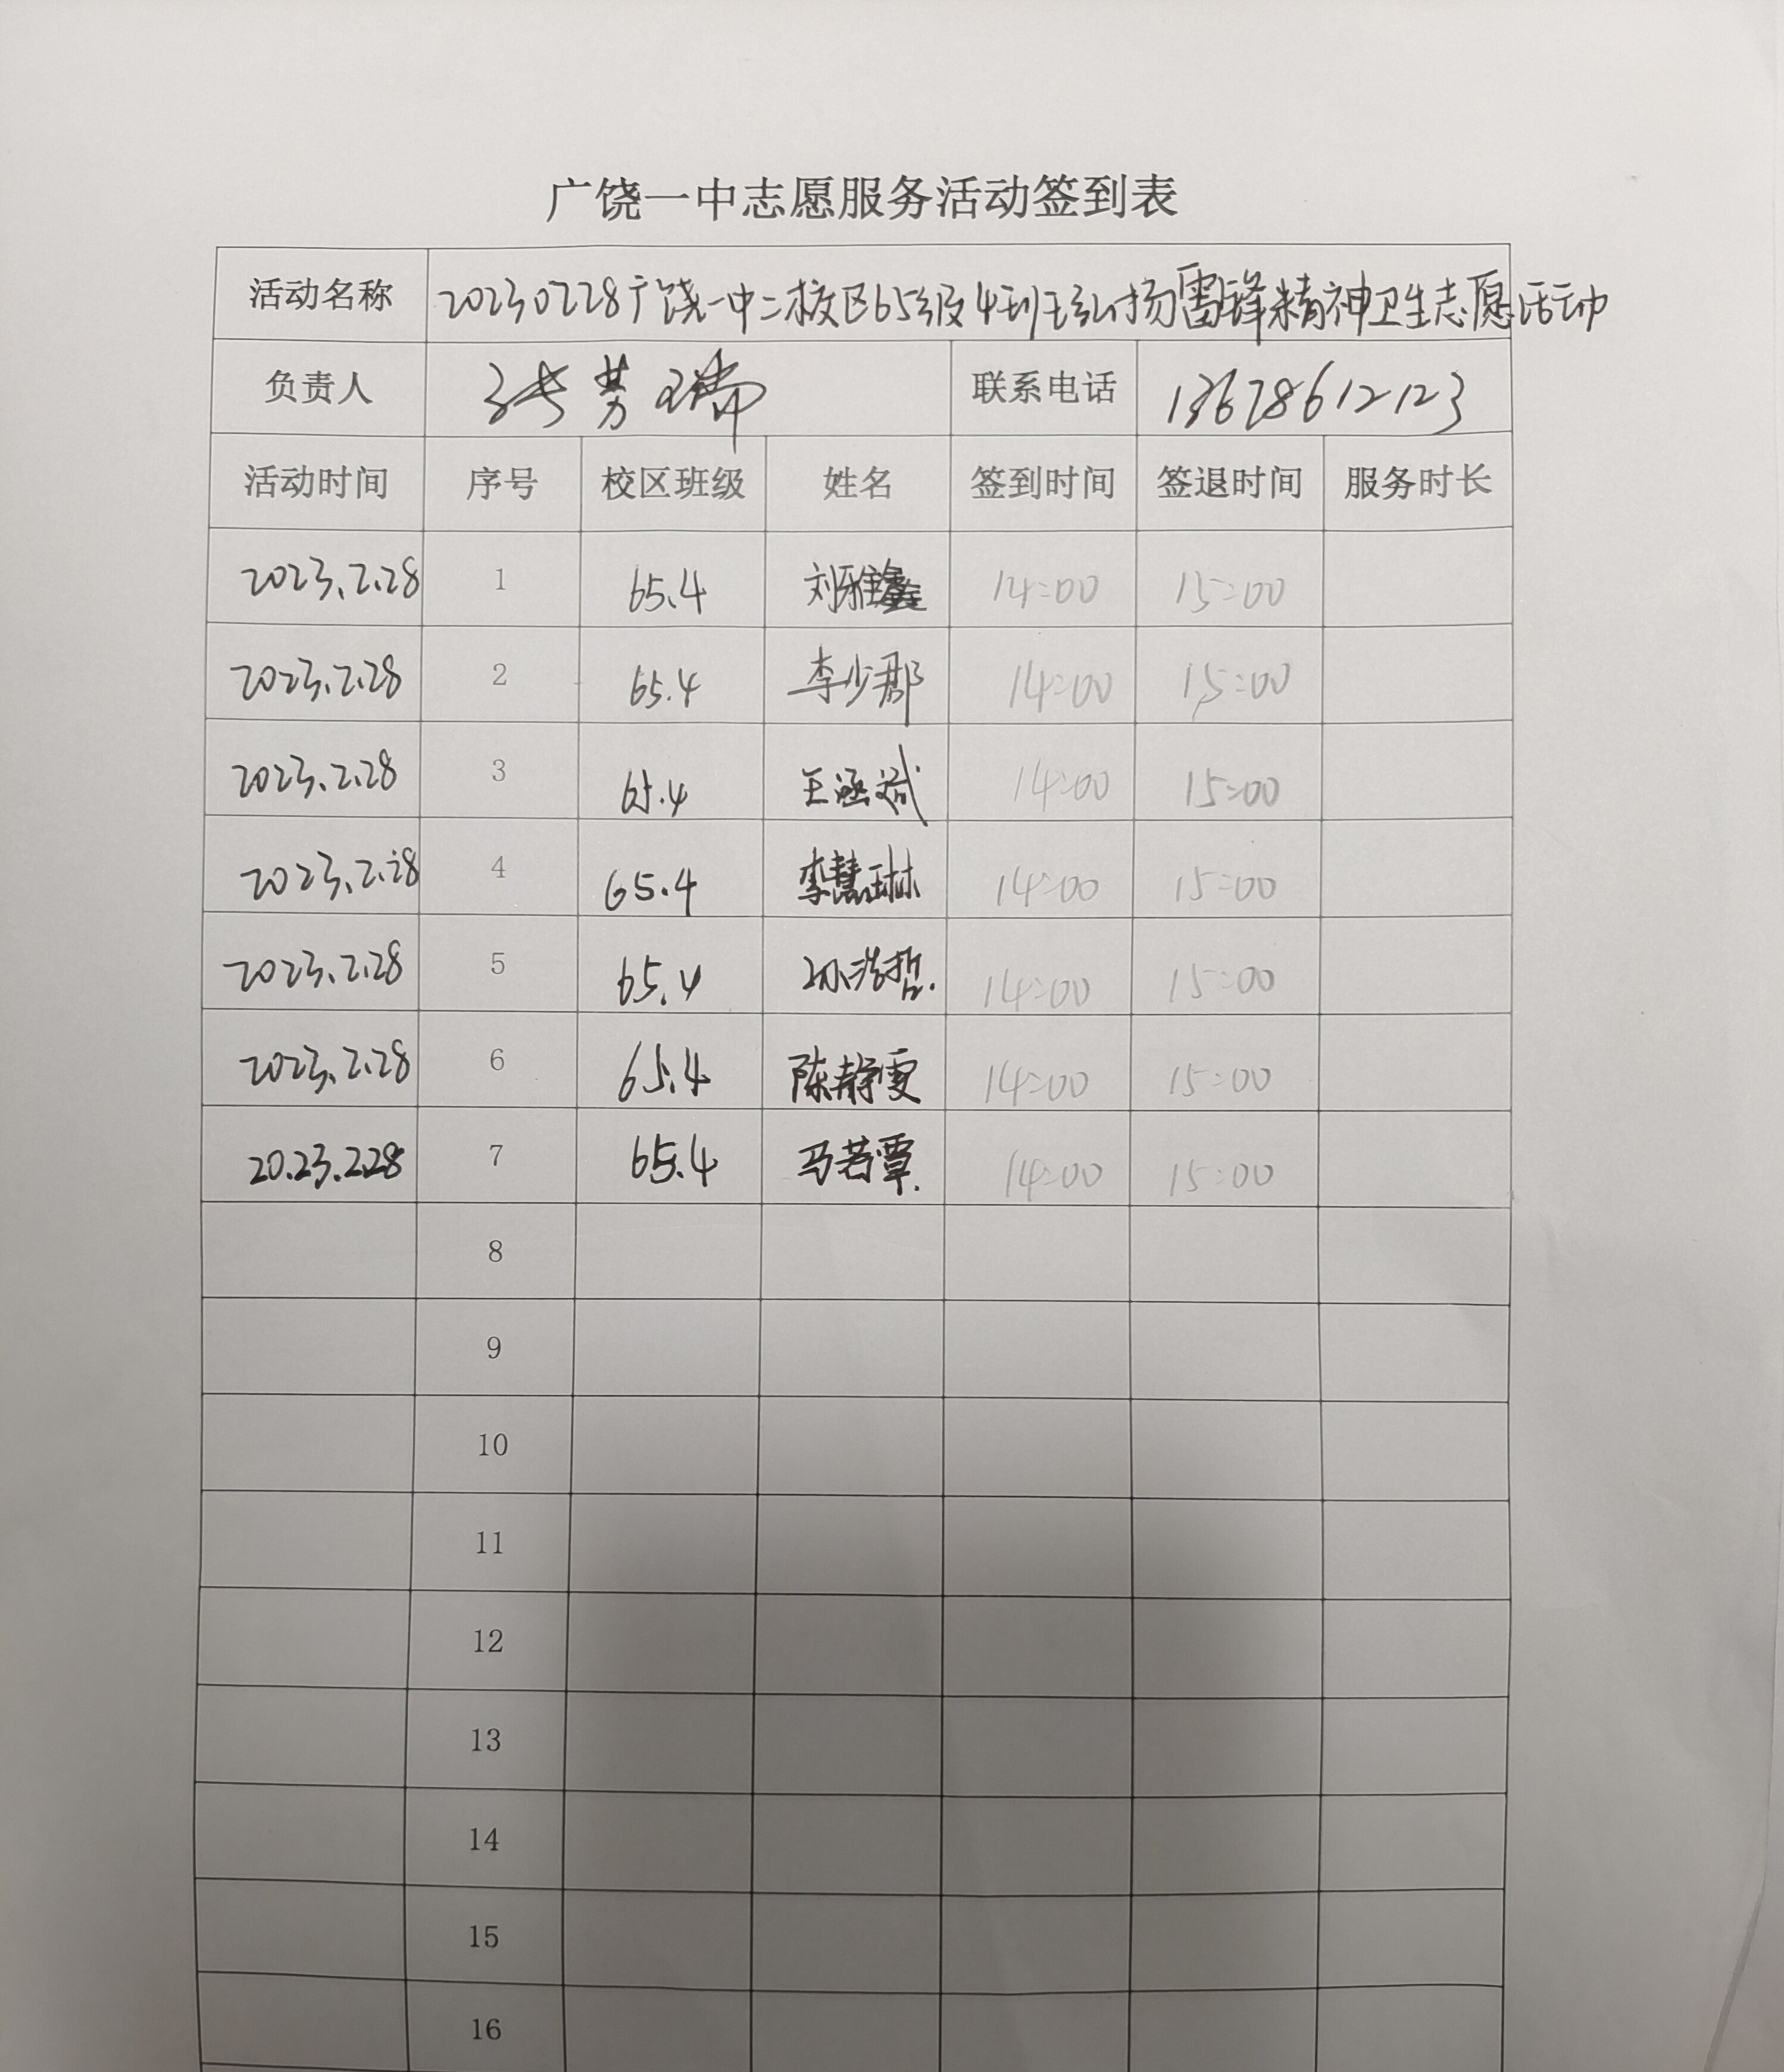 广饶一中志愿服务活动签到表
活动名称 20230228广饶一中二校区65级4班弘扬雷锋精神卫生志愿活动
负责人 张芳瑞 联系电话 13678612123
活动时间 序号 校区班级 姓名 签到时间 签退时间 服务时长
2023.2.28 1 65.4 刘雅鑫 14:00 15:00
2023.2.28 2 65.4 李少郡 14:00 15:00
2023.2.28 3 65.4 王涵斌 14:00 15:00
2023.2.28 4 65.4 李慧琳 14:00 15:00
2023.2.28 5 65.4 孙浩哲. 14:00 15:00
2023.2.28 6 65.4 陈静雯 14:00 15:00
20.23.2.28 7 65.4 马若覃. 14:00 15:00
8
9
10
11
12
13
14
15
16